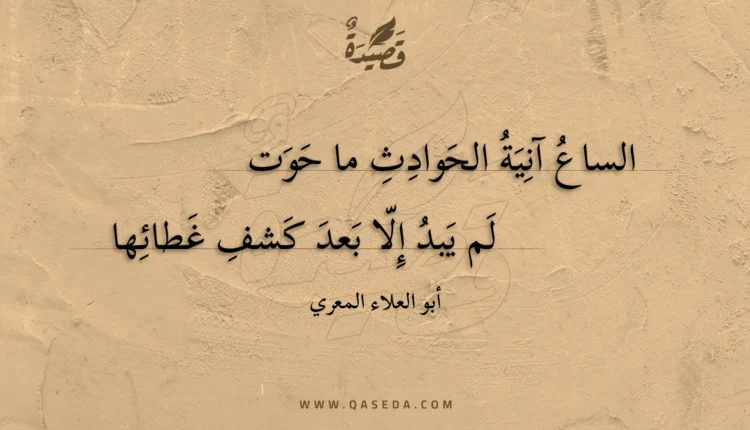 قَصِيدَةٌ
الساعُ آنِيَةُ الحَوادِثِ ما حَوَت
لَم يَبدُ إِلّا بَعدَ كَشفِ غَطائِها
أبو العلاء المعري
WWW.QASEDA.COM